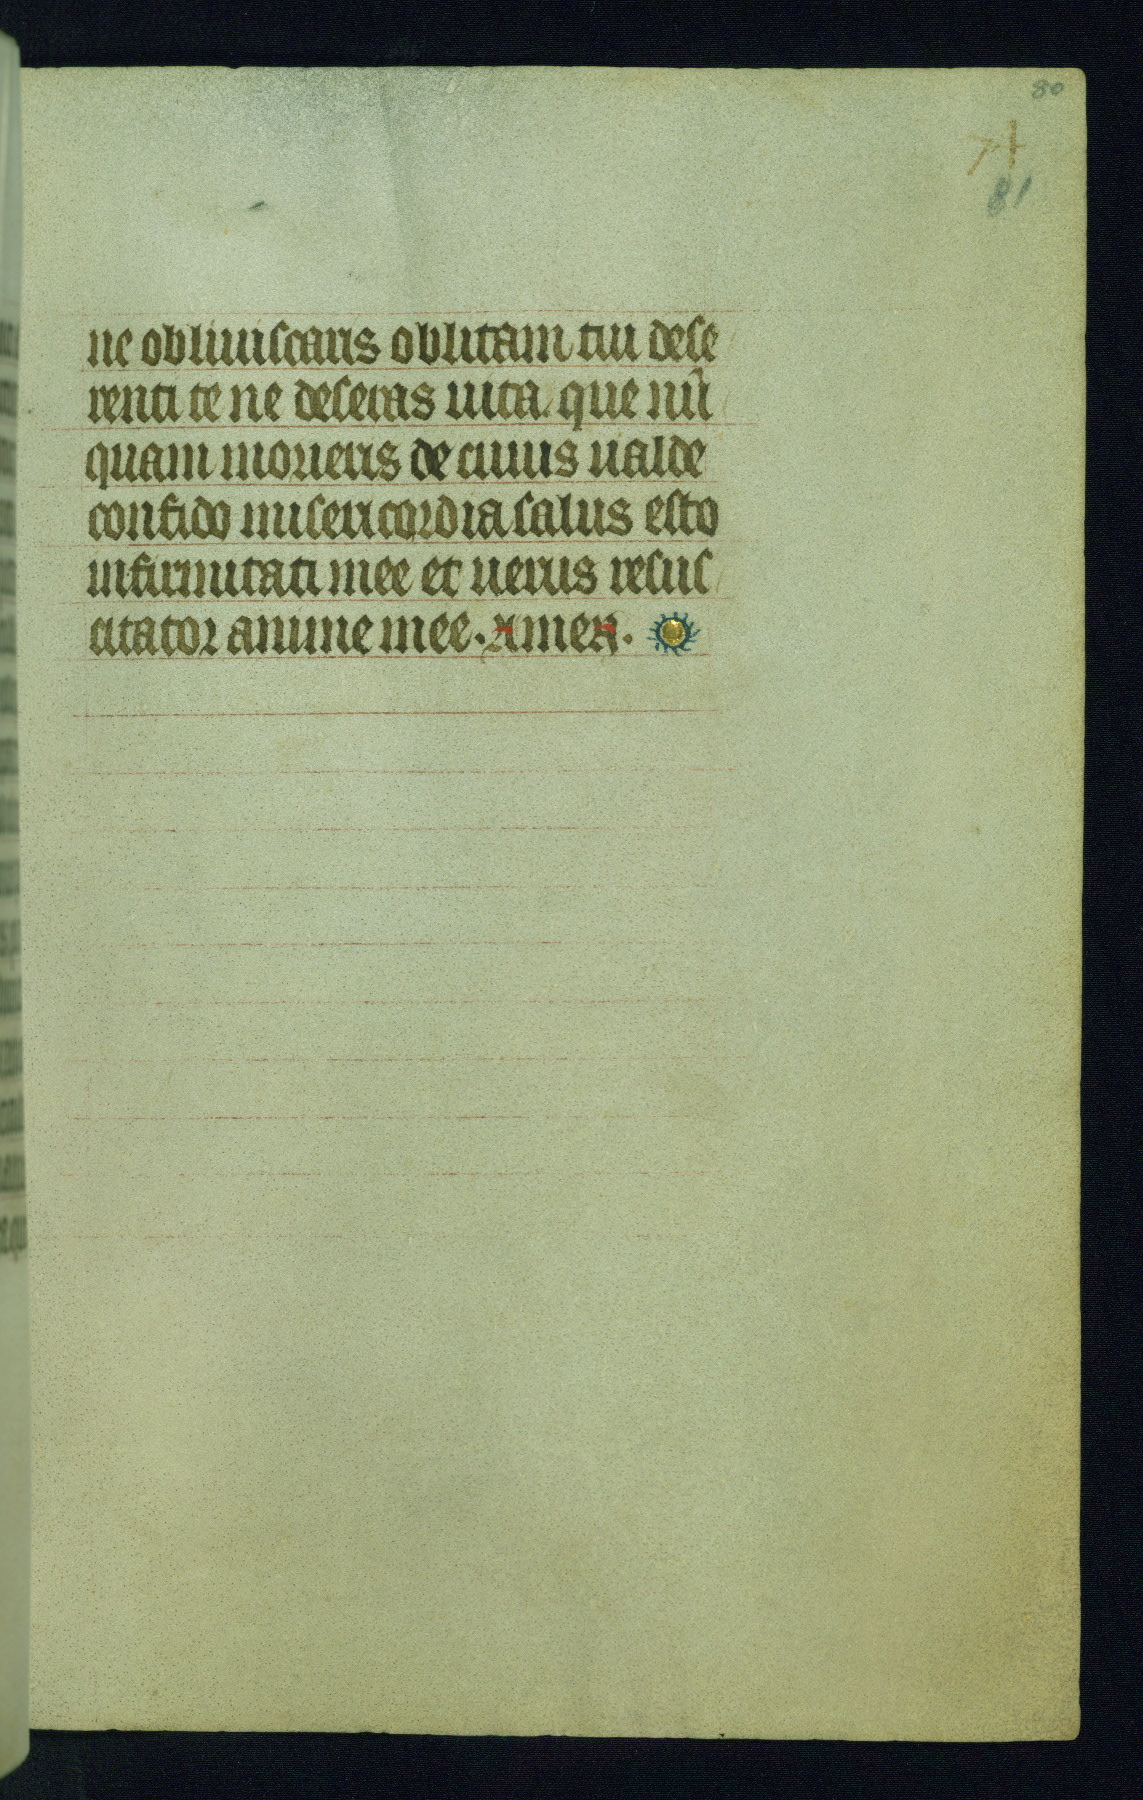 80
74
81
ne obliuiscaris oblitam tui dese
renti te ne deseras uita que nū
quam morieris de cuius ualde
confido misericordia salus esto
infirmitati mee et uerus resus
citator anime mee. Amen.